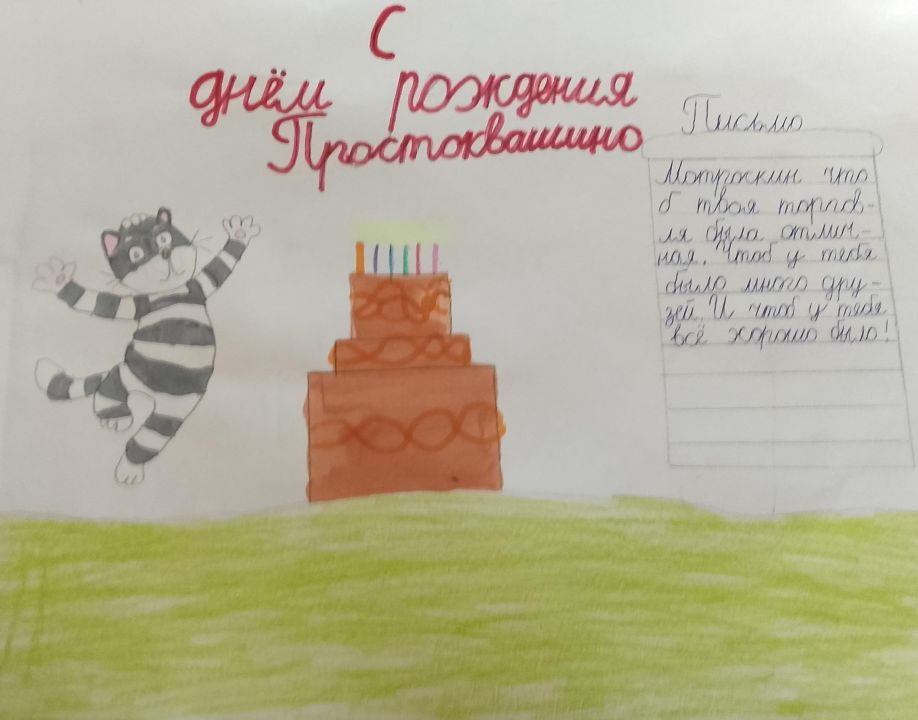 С
днём рождения
Простоквашино
Письмо
Мотроскин что
б твоя торгов-
ля была отлич-
ная. Чтоб у тебя
было много дру-
зей. И чтоб у тебя
всё хорошо было!